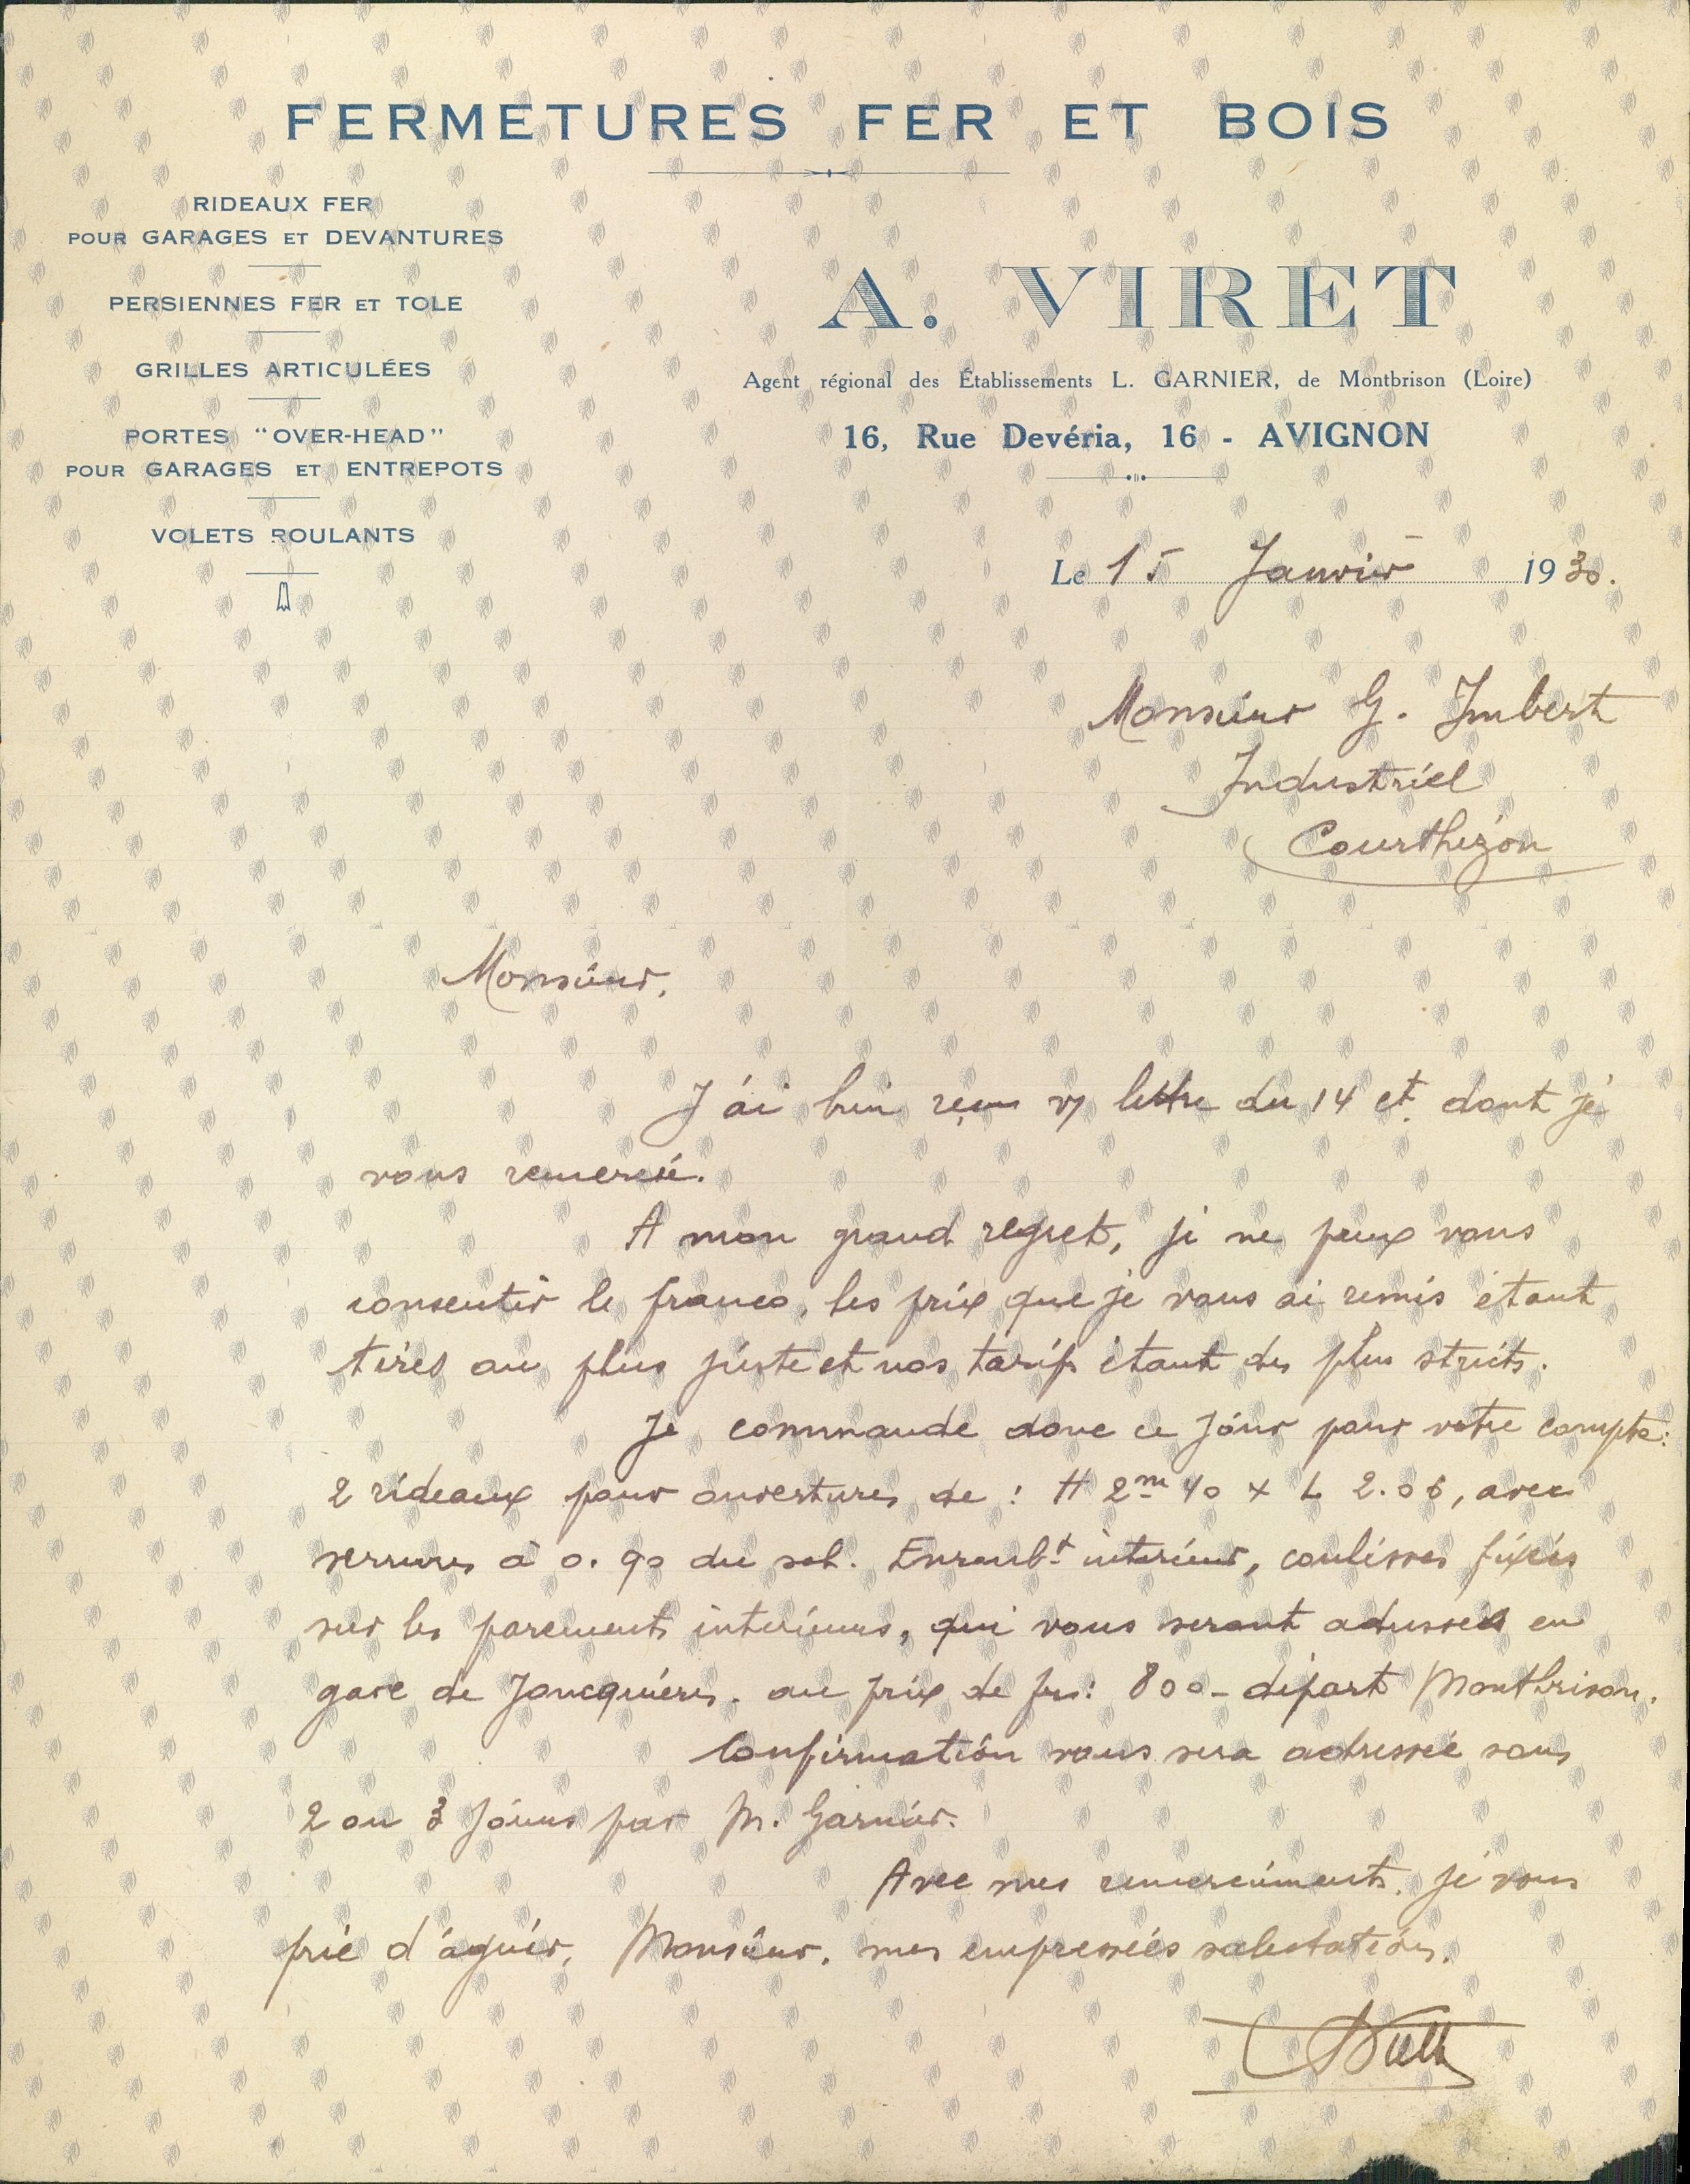 FERMETURES FER ET BOIS
RIDEAUX FER
POUR GARAGES ET DEVANTURES
PERSIENNES FER ET TOLE
GRILLES ARTICULÉES
PORTES "OVER-HEAD"
POUR GARAGES ET ENTREPOTS
VOLETS ROULANTS
A. VIRET
Agent régional des Établissements L. GARNIER, de Montbrison (Loire)
16, Rue Devéria, 16 - AVIGNON
Le 15 Janvier 1930.
Monsieur G. Imbert
Industriel
Courthézon
Monsieur,
J'ai bien reçu v/ lettre du 14 ct. dont je
vous remercie.
A mon grand regret, je ne peux vous
consentir le franco, les prix que je vous ai remis étant
tirés au plus juste et nos tarifs étant des plus stricts.
Je commande donc ce jour pour votre compte:
2 rideaux pour ouvertures de : H 2m 40 x L 2.06, avec
serrures à 0.90 du sol. Enroult. intérieur, coulisses fixées
sur les parements intérieurs, qui vous seront adressés en
gare de Joncquières. au prix de frs: 800 - départ Montbrison.
Confirmation vous sera adressée sous
2 ou 3 jours par M. Garnier.
Avec mes remerciements. Je vous
prie d'agréer, Monsieur, mes empressées salutations.